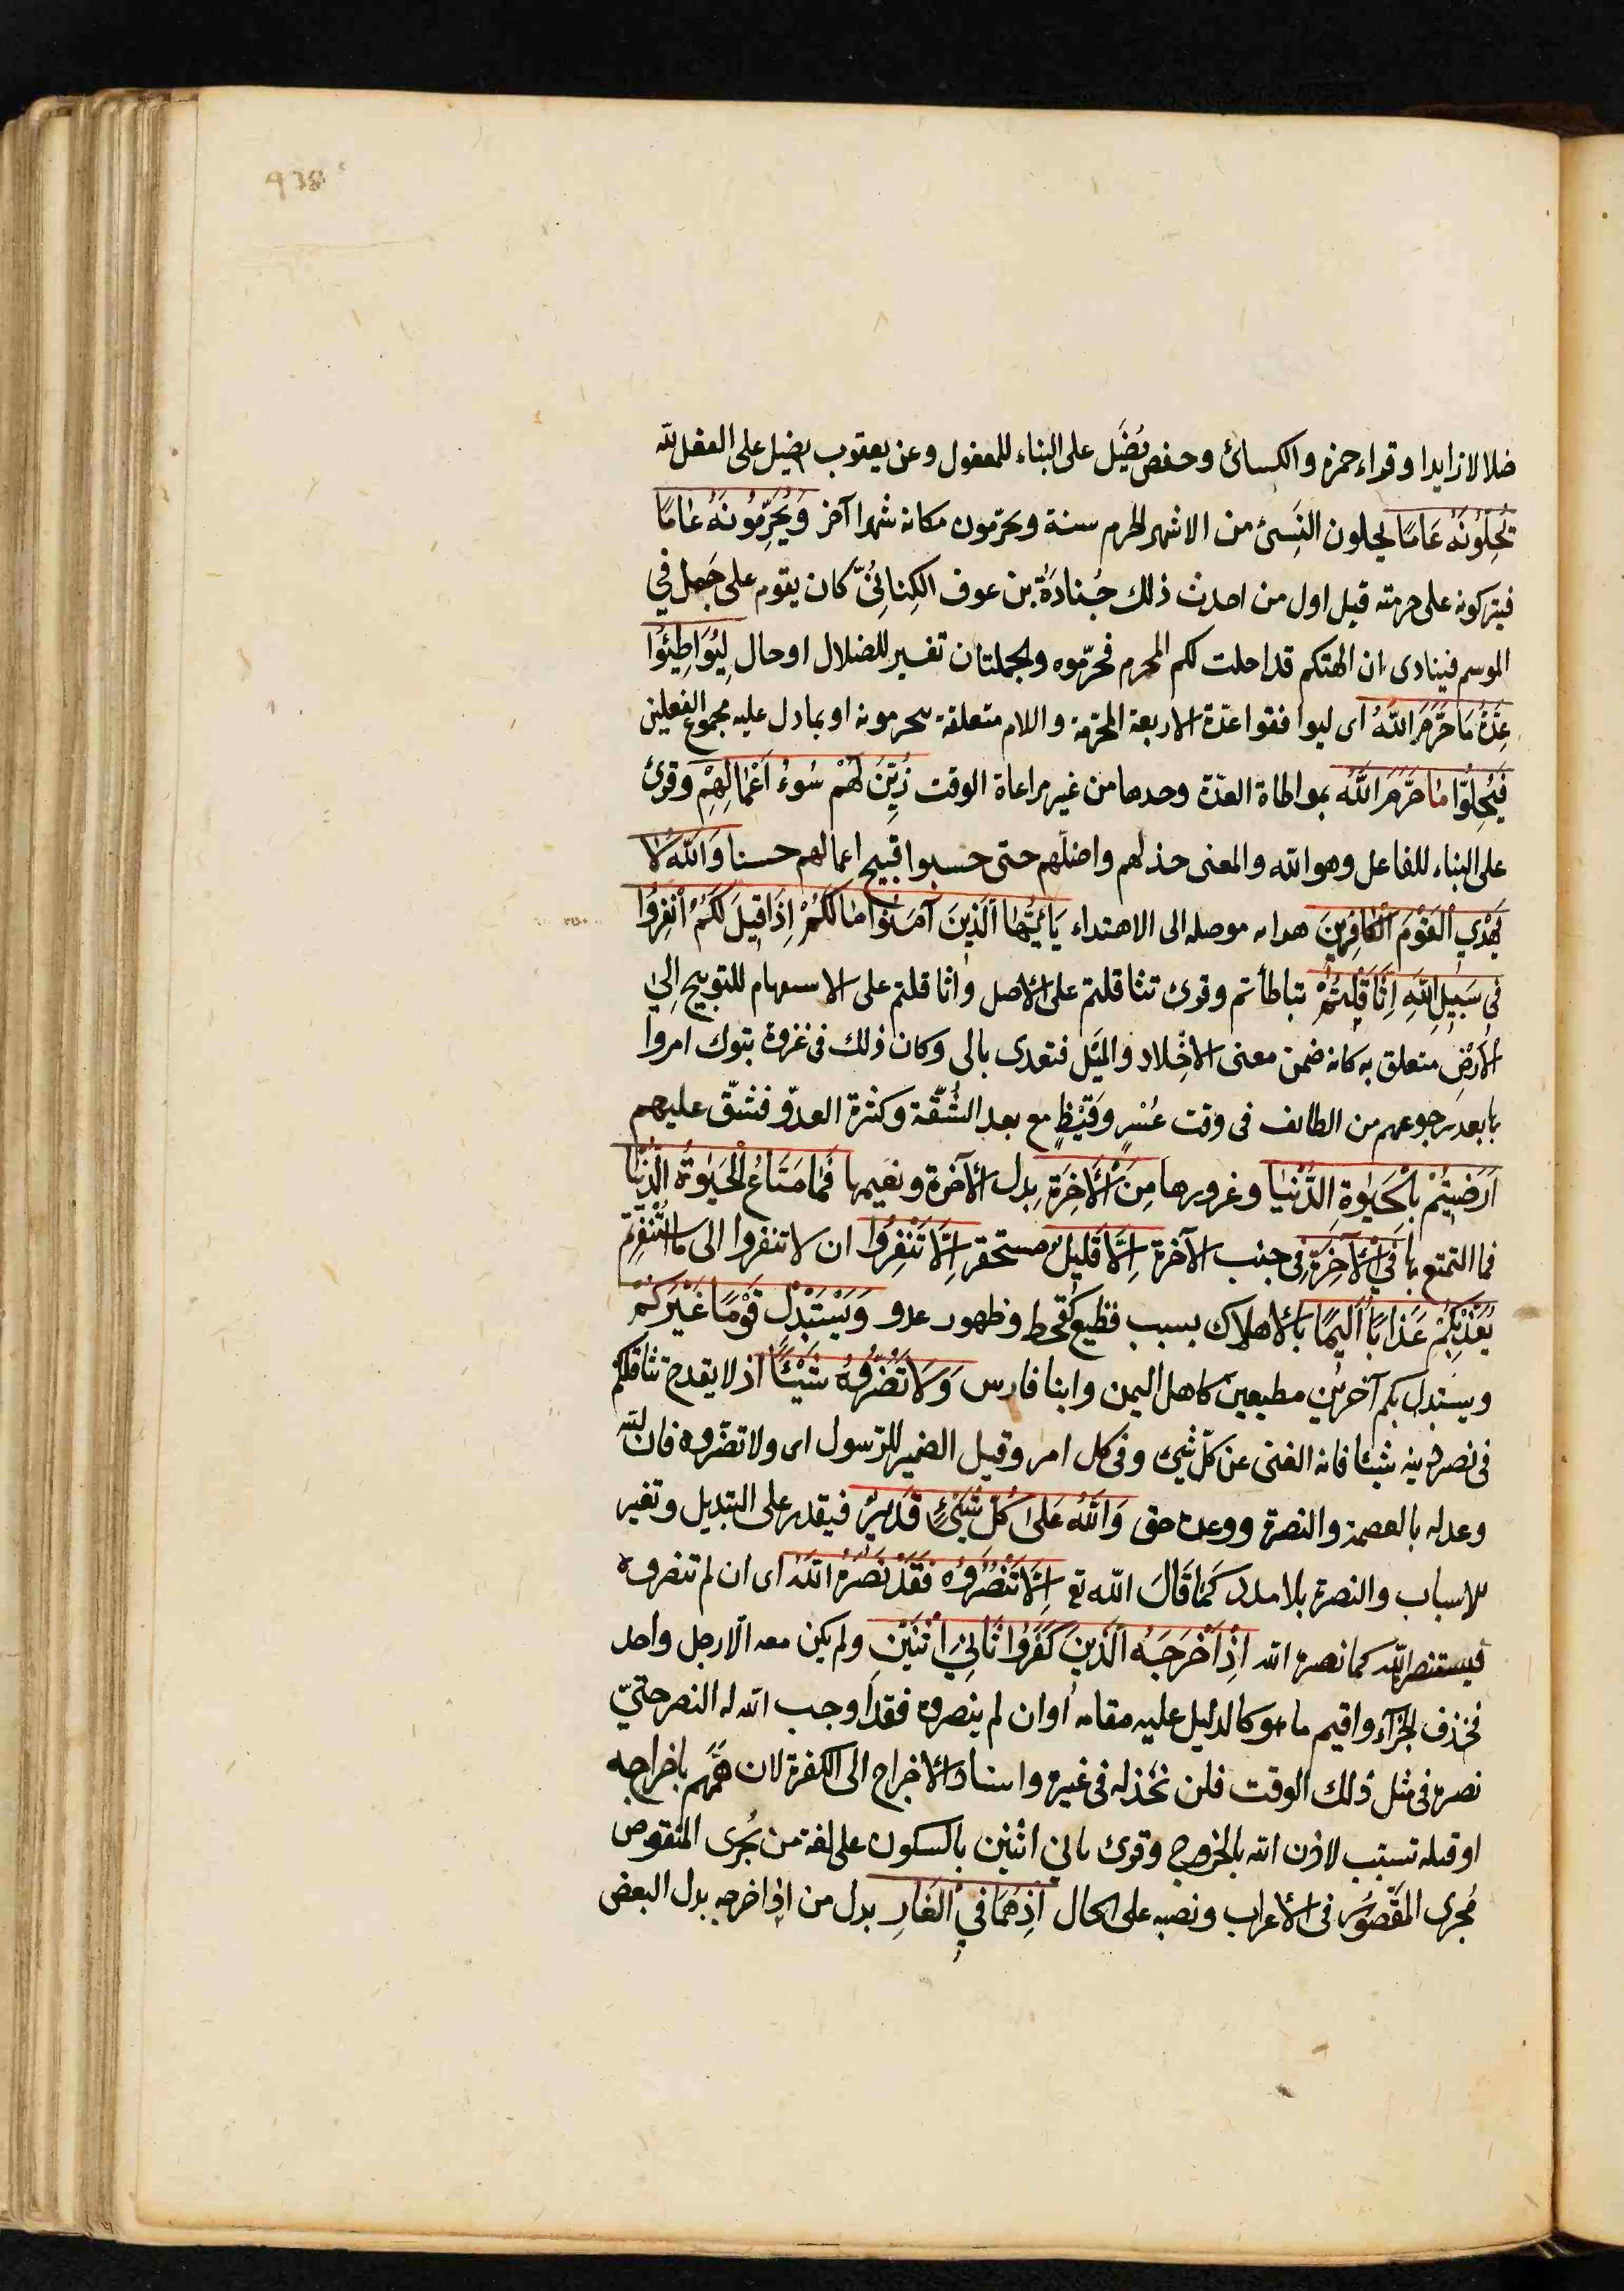 938
ضلالا زايدا وقراء حمزه والكسائ وحفص يُضَل على البناء للمفعول وعن يعقوب يضل على ان الفعل لله
تُحِلّوُنَهُ عَامًا يحلون النَسِئ من الاشهر الحرم سنة ويحرّمون مكانه شهرا آخر وَيُحَرِّمُونَهُ عَامًا
فيتركونه على حرمته قيل اول من احدث ذلك جُنادَة بن عوف الكِنانِىُّ كان يقوم على جَمل في
الموسم فينادى ان الهتكم قد احلت لكم المحرم فحرّموه والجملتان تفسير للضلال او حال لِيُوَاطِئِوُا
عِدَّةَ مَا حَرَّمَ اللّٰهُ اى ليوافقوا عدّة الاربعة المحرّمة واللام متعلقة بيحرمونه او بما دل عليه مجموع الفعلين
فَيُحِلّوُا مَا حَرَّمَ اللّٰهُ بمواطاة العدّة وحدها من غير مراعاة الوقت زُيِّنَ لَهُمْ سُوءُ اَعْمَالِهِمْ وقرئ
على البناء للفاعل وهو الله والمعنى خذلهم واضلّهم حتى حسبوا قبيح اعمالهم حسنا وَاللّٰهُ لَا
يَهْدِي الْقَوْمَ الْكَافِرِينَ هدايه موصله الى الاهتداء يَا اَيُّهَا الَّذِينَ آمَنُوا مَا لَكُمْ اِذَا قِيلَ لَكُمْ انْفِرُوا
فِي سَبِيلِ اللّٰهِ اِثَّاقَلْتُمْ تباطأتم وقرئ تثاقلتم على الاصل واثاقلتم على الاستفهام للتوبيخ اِلَى
الْاَرْضِ متعلق به كانه ضمن معنى الاخلاد والميَل فتعدى بالى وكان ذلك فى غزوة تبوك امروا
بها بعد رجوعهم من الطائف فى وقت عُسْرٍ وَقَيْظٍ مع بعد الشُّقّة وكثرة العدوّ فشقّ عليهم
اَرَضِيتُمْ بِالْحَيٰوةِ الدُّنْيَا وغرورها مِنَ الْاٰخِرَةِ بدل الآخرة ونعيمها فَمَا مَتَاعُ الْحَيٰوةِ الدُّنْيَا
فما التمتع بها فِي الْآخِرَةِ فى جنب الآخرة اِلَّا قَلِيلٌ مستحقر اِلَّا تَنْفِرُوا ان لا تنفروا الى ما استنفرتم
يُعَذِّبْكُمْ عَذَابًا اَلِيمًا بالاهلاك بسبب فظيع كقحط وظهور عدو وَيَسْتَبْدِلْ قَوْمًا غَيْرَكُمْ
ويستبدل بكم آخرين مطيعين كاهل اليمن وابنا فارس وَلَا تَضُرُّوهُ شَيْئًا اذ لا يقدح تثاقلكم
فى نصر دينه شيئا فانه الغنى عن كلّ شئ وفى كل امر وقيل الضمير للرّسول اى ولا تضروه فان الله
وعد له بالعصمة والنصرة ووعده حق وَاللّٰهُ عَلَى كُلِّ شَيْئٍ قَدِيرٌ فيقدر على التبديل وتغير
الاسباب والنصرة بلا مدد كَمَا قَالَ الله تع اِلَّا تَنْصُرُوهُ فَقَدْ نَصَرَهُ اللّٰهُ اى ان لم تنصروه
فيستنصر الله كما نصره الله اِذْ اَخْرَجَهُ الَّذِينَ كَفَرُوا ثَانِيَ اثْنَيْنِ ولم يكن معه الّا رجل واحد
فحذف الجزآء واقيم ما هو كالدليل عليه مقامه او ان لم ينصروه فقد اوجب الله له النصر حتىّ
نصره فى مثل ذلك الوقت فلن نخذله فى غيره واسناد الاخراج الى الكفرة لان همّهم باخراجه
او قتله تسبّب لاذن الله بالخروج وقرئ ثانى اثنين بالسكون على لغة من يُجرى المنقوص
مُجرى المَقْصوُر فى الاعراب ونصبه على الحال اِذْ هُمَا فِي الْغَارِ بدل من اذ اخرجه بدل البعض